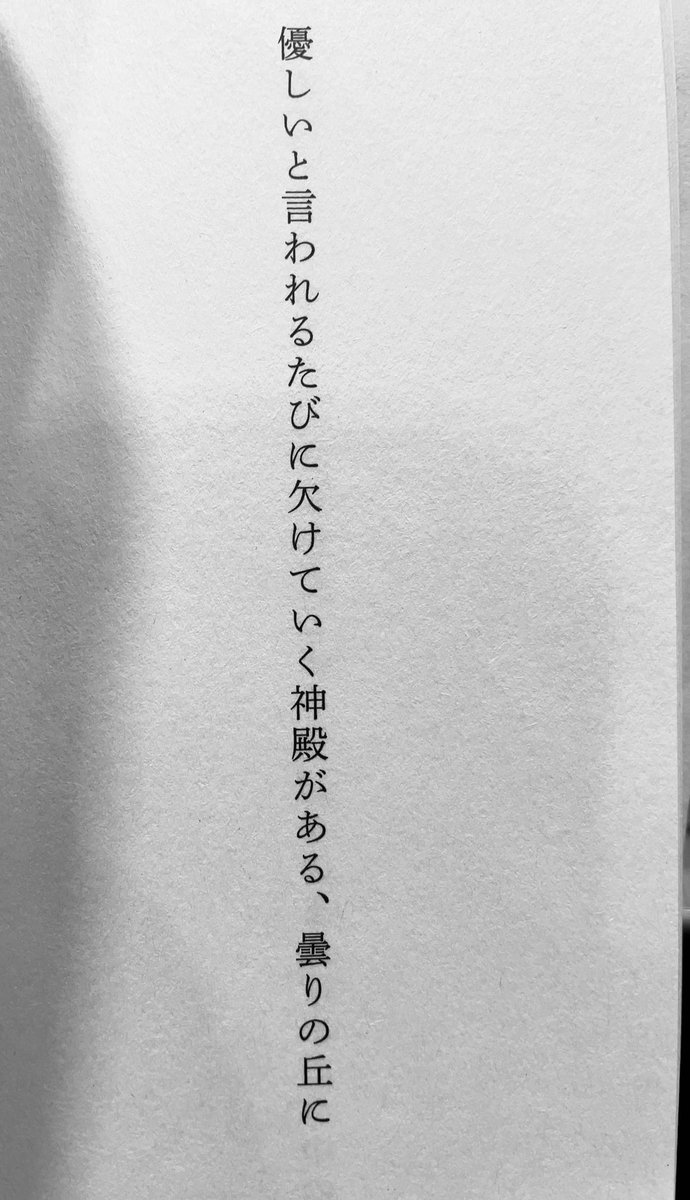 優しいと言われるたびに欠けていく神殿がある、曇りの丘に